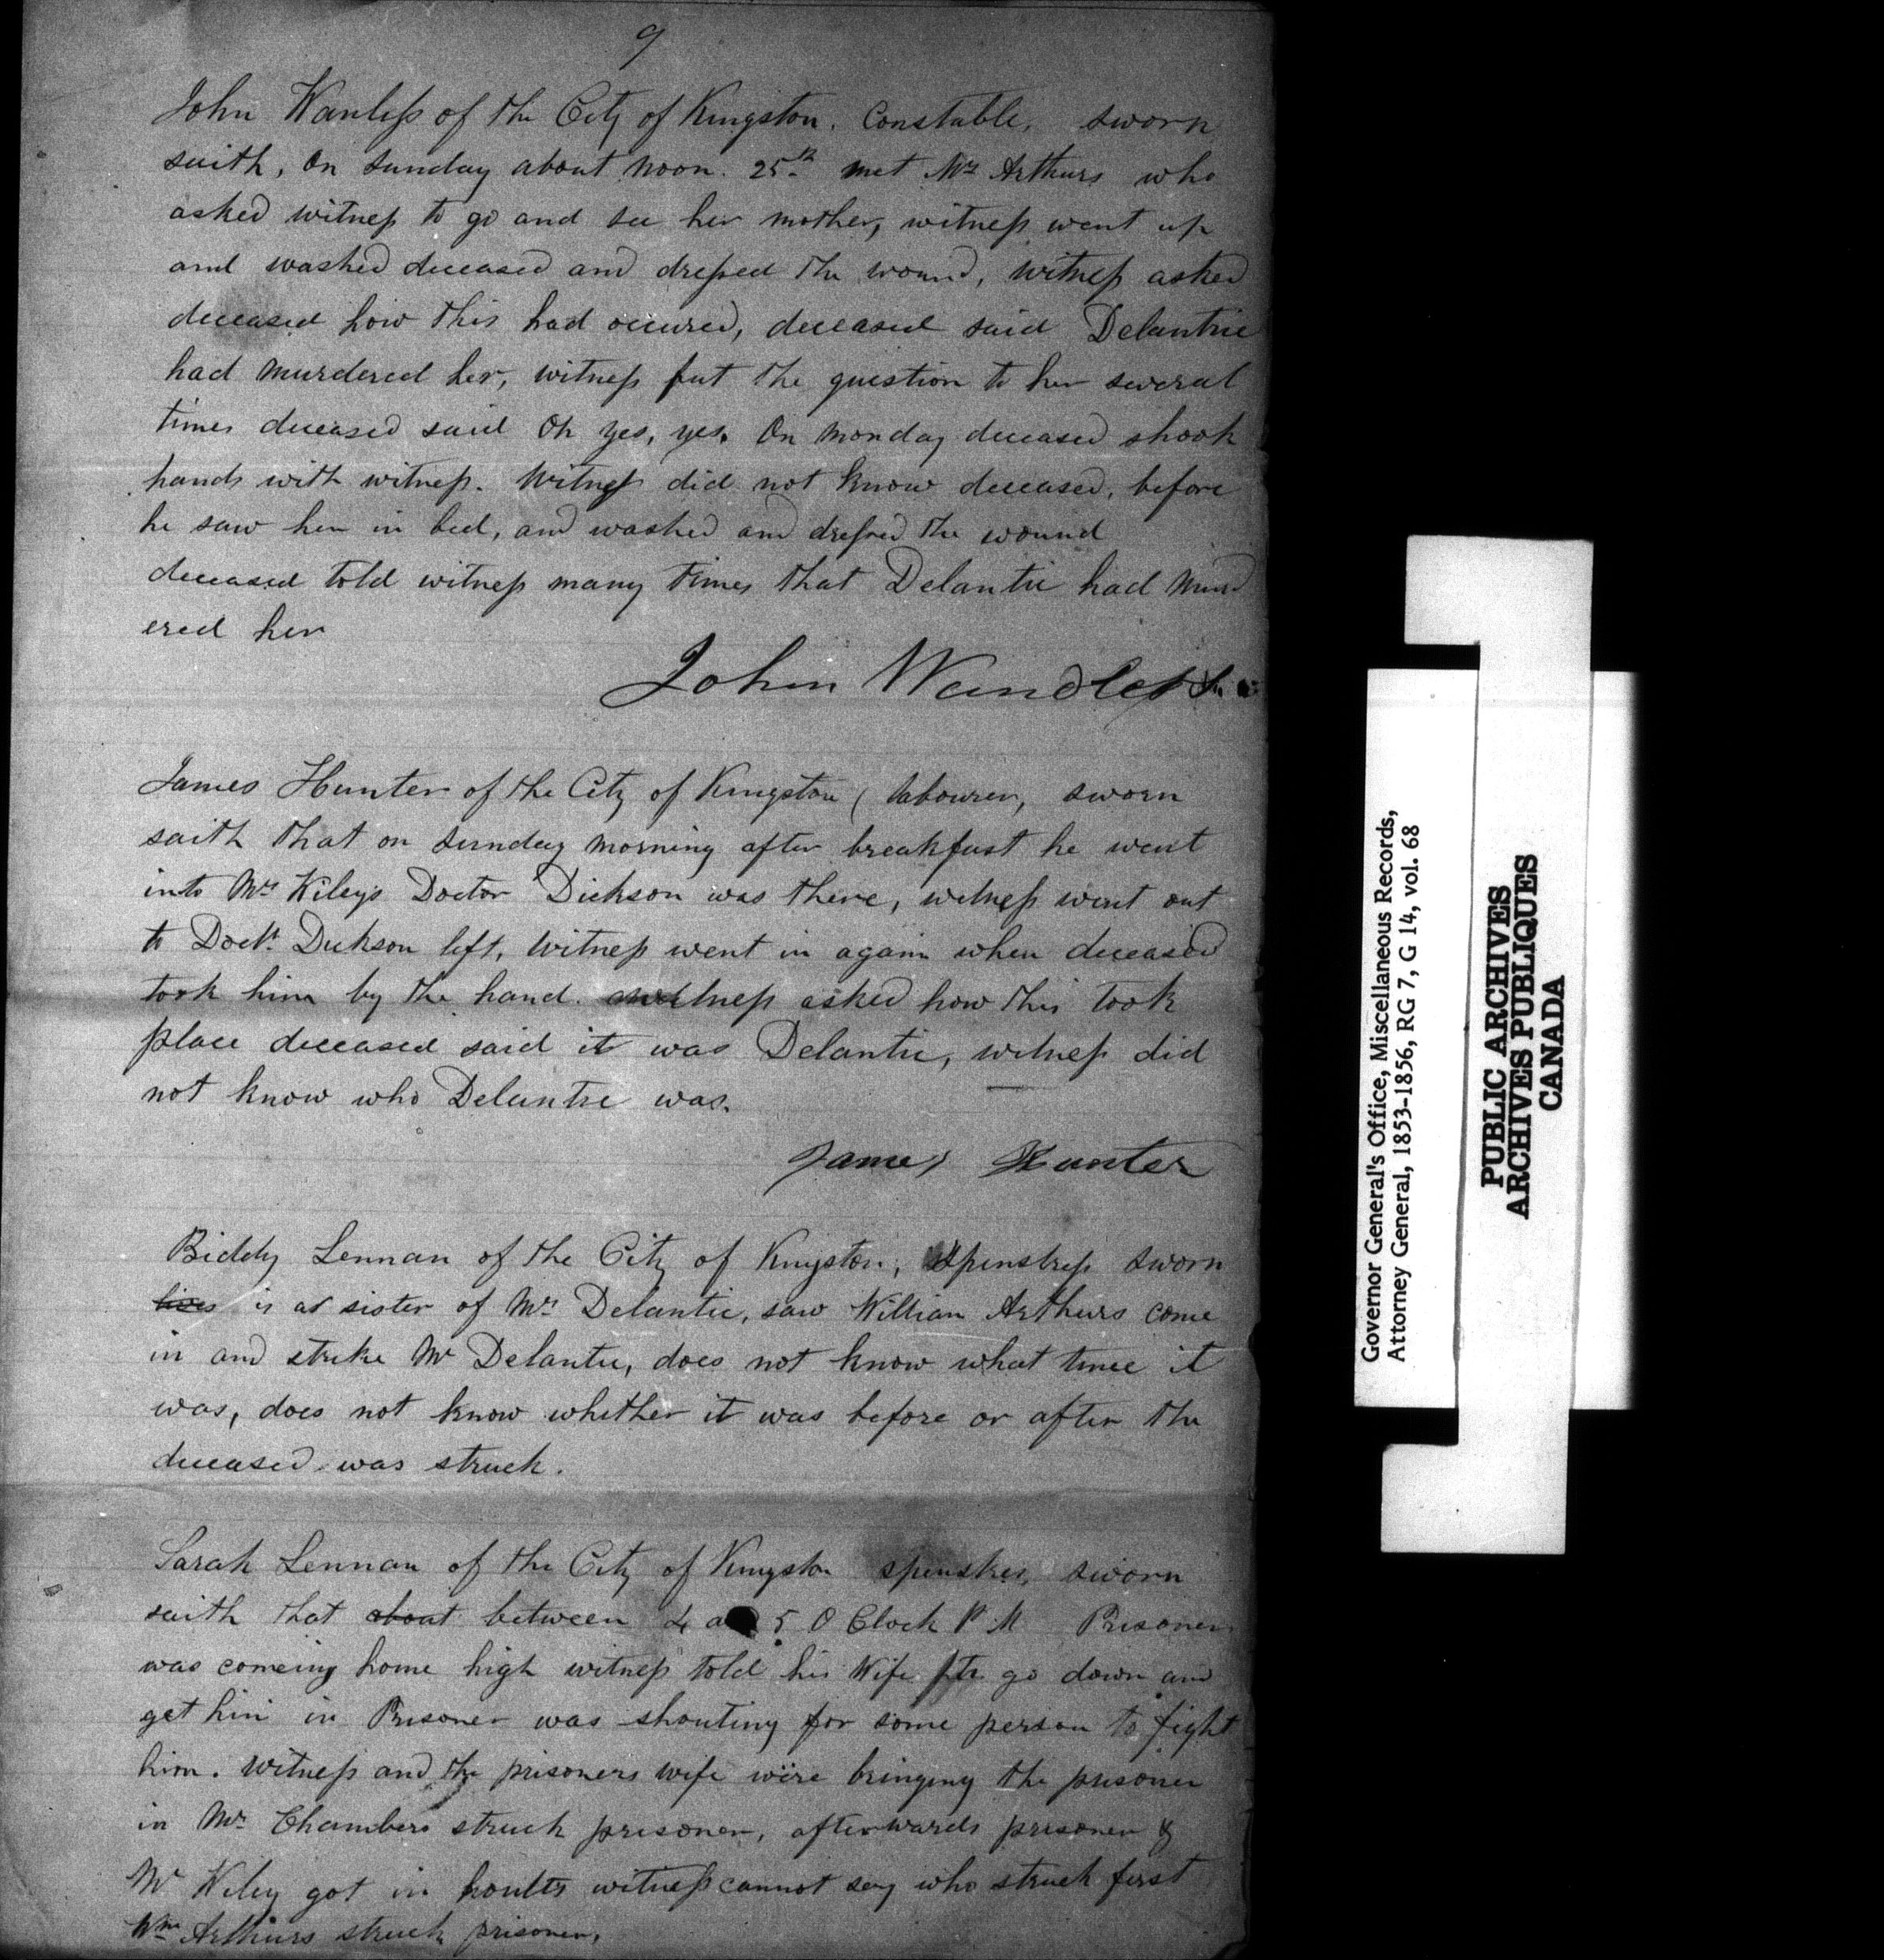 9
John Wanless of the City of Kingston. Constable, sworn
saith, On Sunday about noon. 25th met Mrs Arthurs who
asked witness to go and see her mother, witness went up
and washed deceased and dressed the wound, witness asked
deceased how this had occured, deceased said Delantie
had murdered her, witness put the question to her several
times deceased said Oh yes, yes. On Monday deceased shook
hands with witness. Witness did not know deceased, before
he saw her in bed, and washed and dressed the wound
deceased told witness many times that Delantie had Murd
ered her
John Wandless
James Hunter of the City of Kingston ( labourer, sworn
saith that on Sunday morning after breakfast he went
into Mrs Kileys Doctor Dickson was there, witness went out
to Doctr. Dickson left, witness went in again when deceased
took him by the hand. witness asked how this took
place deceased said it was Delantie, witness did
not know who Delantie was.
James Hunter
Biddy Lennan of the City of Kingston, Spinstress sworn
lives is as sister of Mrs Delantie, saw William Arthurs come
in and strike Mr Delantie, does not know what time it
was, does not know whether it was before or after the
deceased was struck.
Sarah Lennan of the City of Kingston spinster, sworn
saith that about between 4 a 5 O Clock P M Prisoner
was comeing home high witness told his Wife to go down and
get him in Prisoner was shouting for some person to fight
him. Witness and the prisoners wife were bringing the prisoner
in Mr. Chambers struck prisoner, afterwards prisoner &
Mr Kiley got in hoults witness cannot say who struck first
Wm Arthurs struck prisoner,
Governor General's Office, Miscellaneous Records,
Attorney General, 1853-1856, RG 7, G 14, vol. 68
PUBLIC ARCHIVES
ARCHIVES PUBLIQUES
CANADA